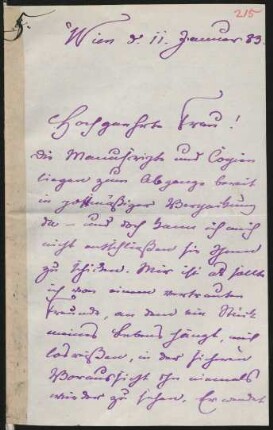 5.
215
Wien d. 11. Januar 83.
Hochgeehrte Frau!
die Manuscripte und Copien
liegen zum Abgange bereit
in postmäßiger Verpackung
da – und doch kann ich mich
nicht entschließen sie Ihnen
zu schicken. Mir ist als sollte
ich von einem vertrauten
Freunde, an dem ein Stück
meines Lebens hängt, mich
losreißen, in der sichern
Voraussicht ihn niemals
wieder zu sehen. Er wandert